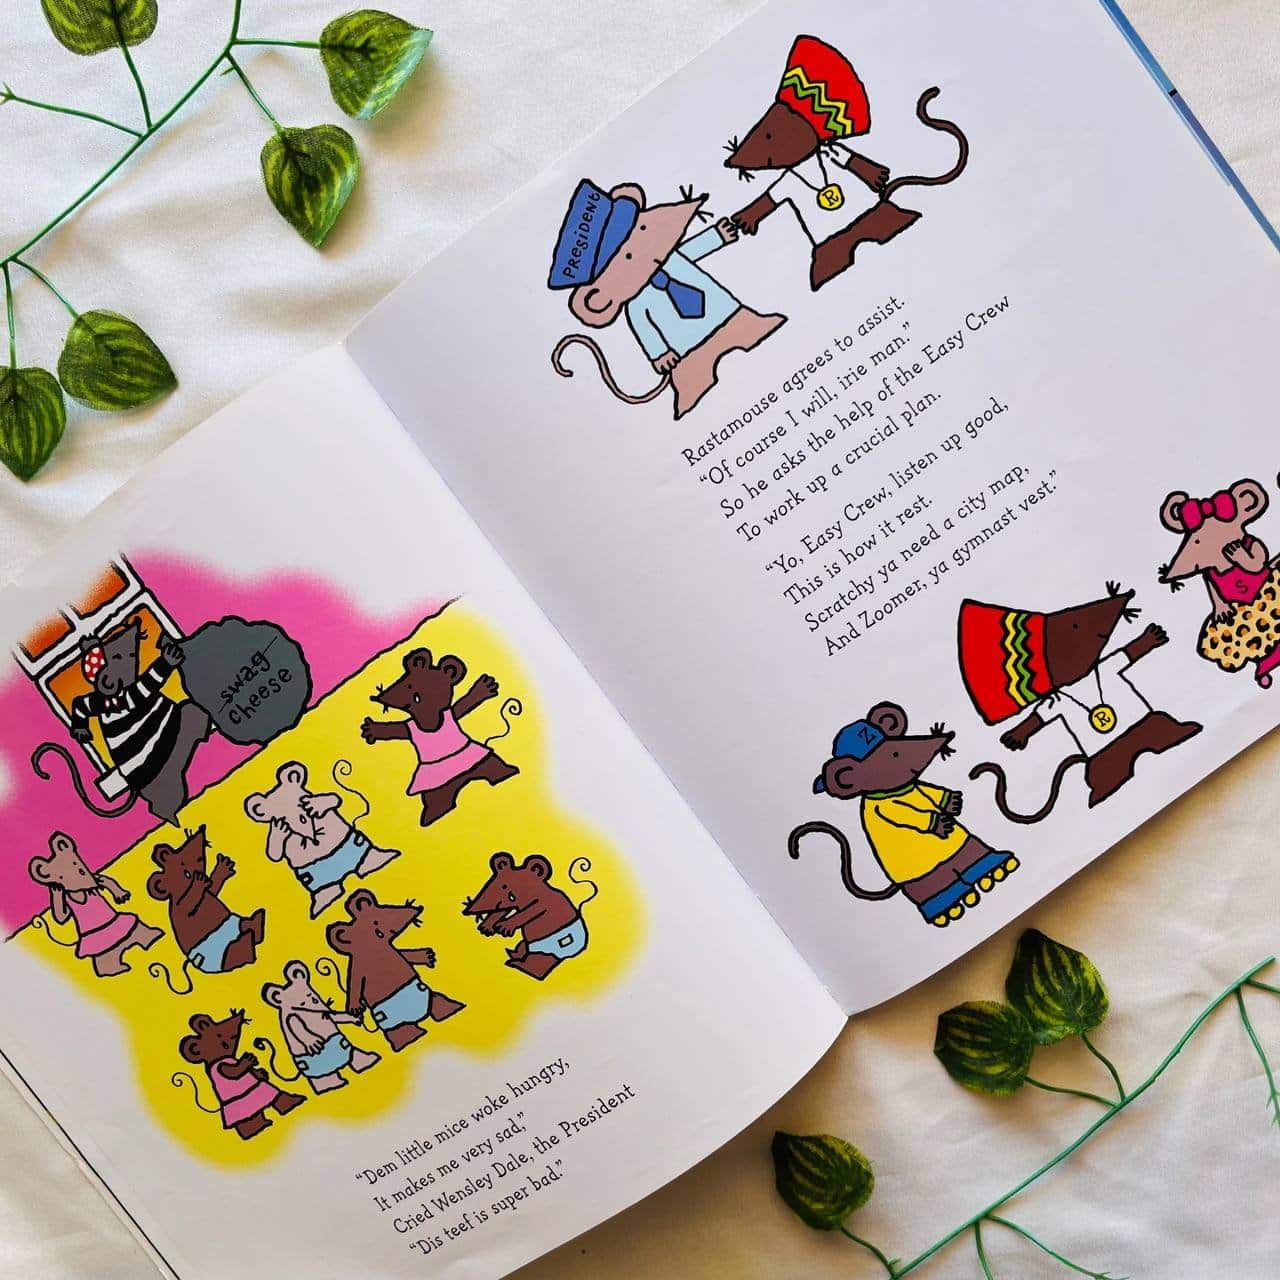 swag
cheese
"Dem little mice woke hungry,
It makes me very sad,"
Cried Wensley Dale, the President
"Dis teef is super bad."
PRESIDENT
R
Rastamouse agrees to assist.
"Of course I will, irie man."
So he asks the help of the Easy Crew
To work up a crucial plan.
"Yo, Easy Crew, listen up good,
This is how it rest.
Scratchy ya need a city map,
And Zoomer, ya gymnast vest."
S
R
Z